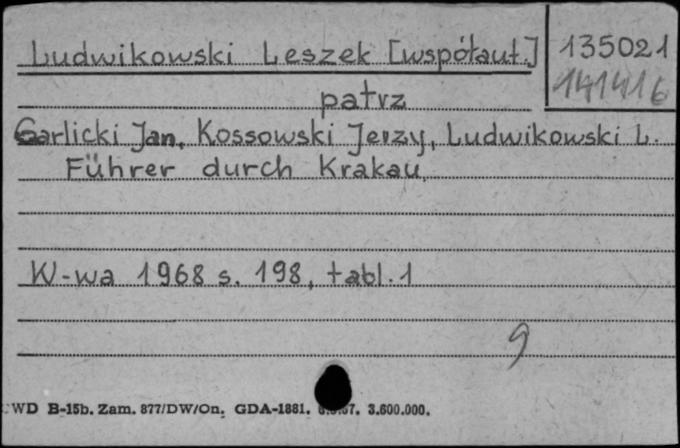 Ludwikowski Leszek [współaut.] 135021
141416
patrz
Garlicki Jan, Kossowski Jerzy, Ludwikowski L.
Führer durch Krakau.
W-wa 1968 s. 198, tabl. 1
9
WD B-15b. Zam. 877/DW/On. GDA-1881. 3.600.000.